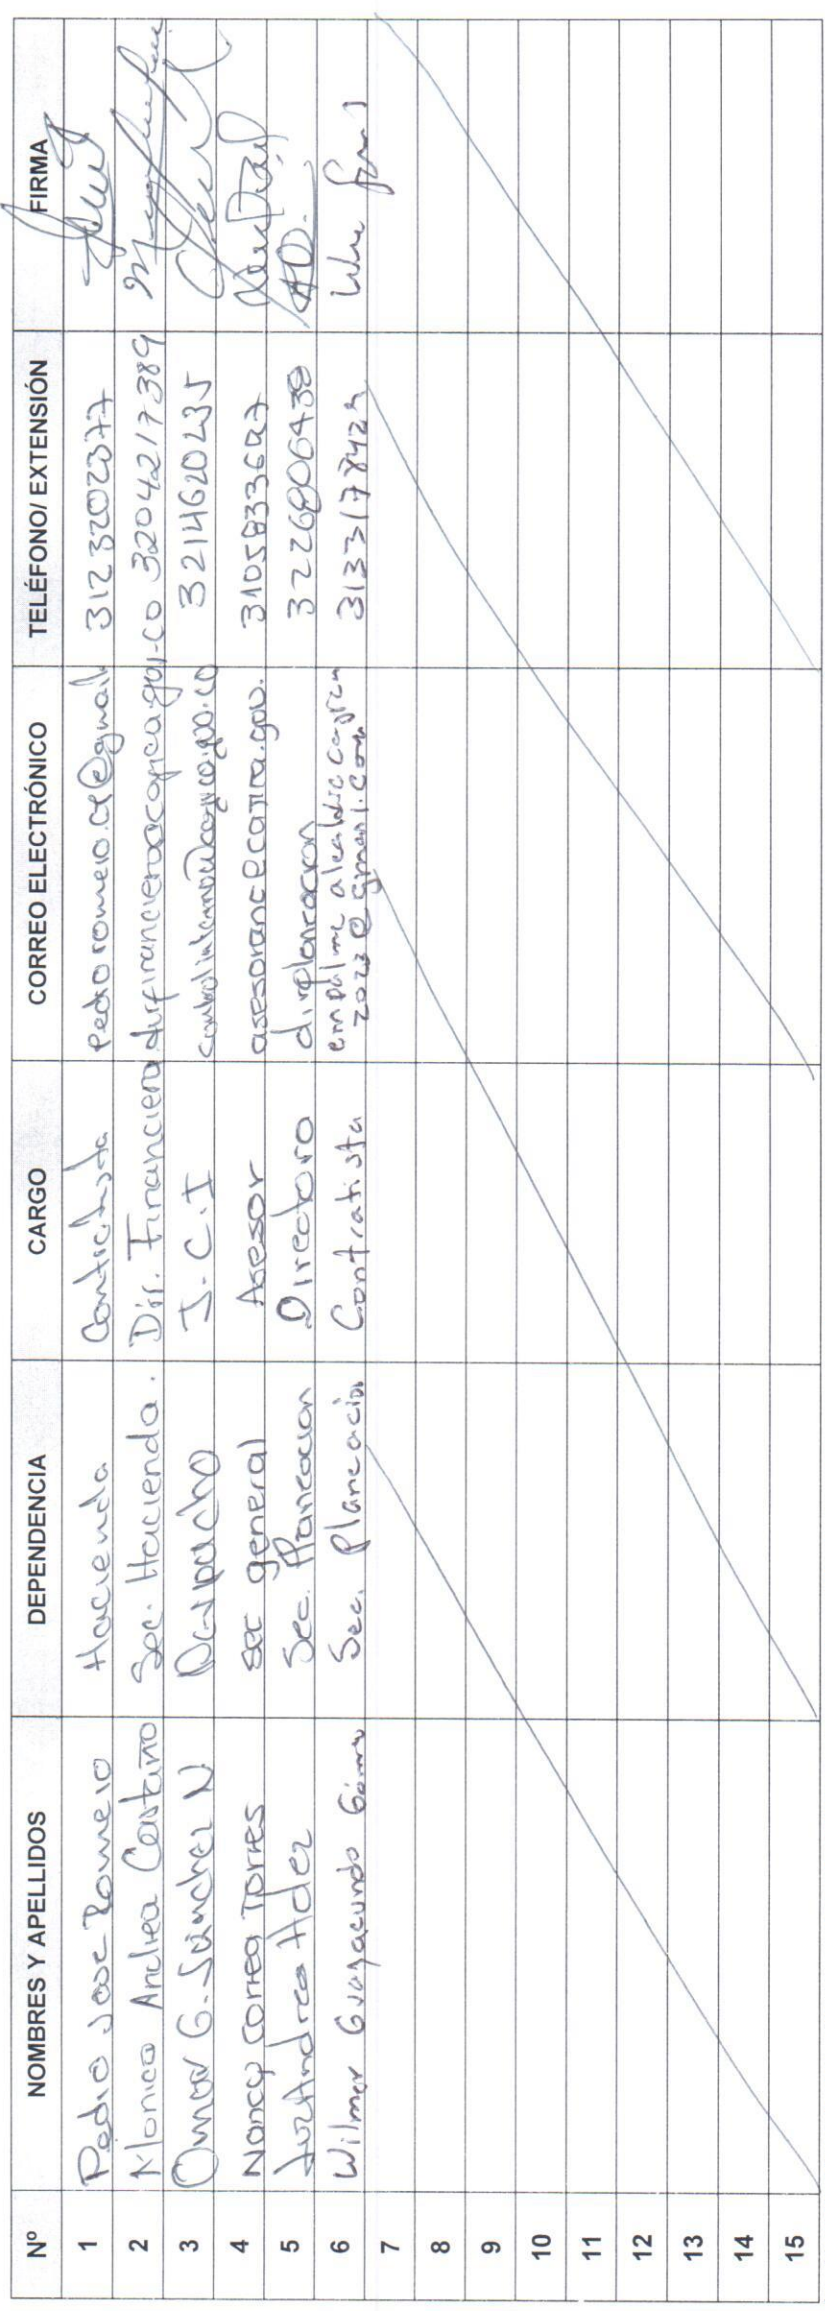 Nº NOMBRES Y APELLIDOS DEPENDENCIA CARGO CORREO ELECTRÓNICO TELÉFONO/ EXTENSIÓN FIRMA
1 Pedro Jose Romero Hacienda Contratista pedroromero.cf@gmail 3123202377
2 Monica Andrea Castaño Sec. Hacienda. Dir. Financiero dirfinanciero@cajica.gov.co 3204217389
3 Omar G. Sánchez N Despacho J.C.I controlinterno@cajica.gov.co 3214620235
4 Nancy Correa Torres sec general Asesor 3105833627
5 Luz Andrea Hdez Sec. Planeacion Directora dirplaneacion 3226806438
6 Wilmer Guagacundo Gómez Sec. Planeación Contratista empalme alcaldia cajica 3133178424
2023@gmail.com
7
8
9
10
11
12
13
14
15